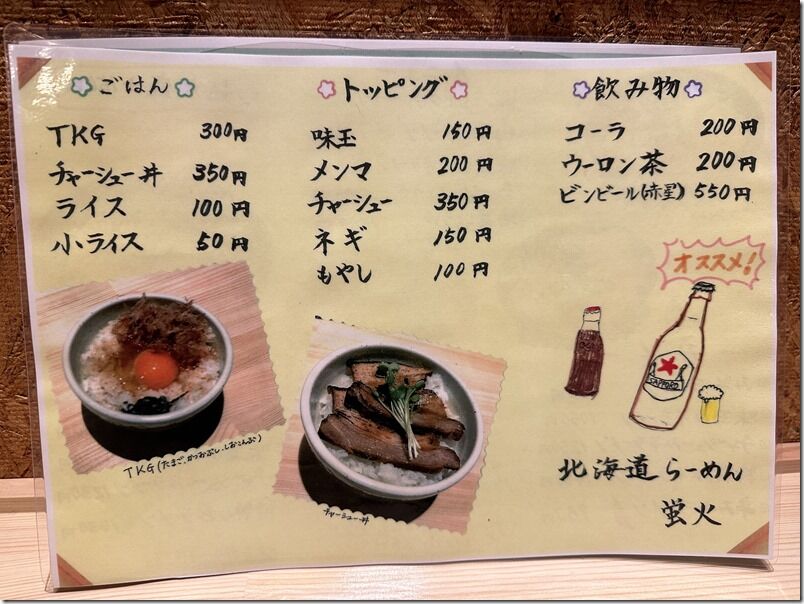 ごはん
TKG 300円
チャーシュー丼 350円
ライス 100円
小ライス 50円
トッピング
味玉 150円
メンマ 200円
チャーシュー 350円
ネギ 150円
もやし 100円
飲み物
コーラ 200円
ウーロン茶 200円
ビンビール(赤星) 550円
オススメ!
SAPPORO
TKG(たまご、かつおぶし、しおこんぶ)
チャーシュー丼
北海道らーめん
蛍火